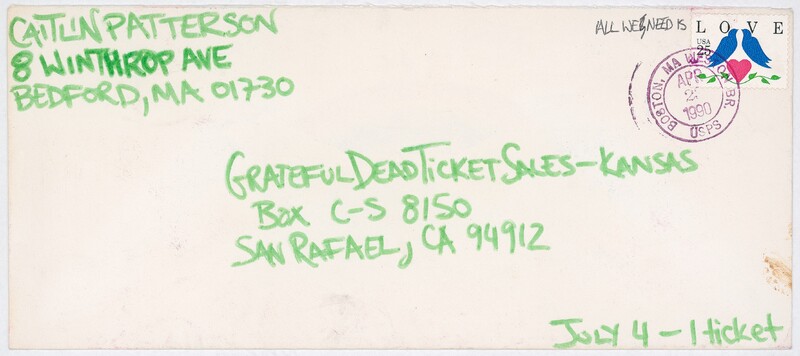 CAITLIN PATTERSON
8 WINTHROP AVE
BEDFORD, MA 01730
ALL WE NEED IS
LOVE
USA
25
BOSTON, MA
APR
1990
USPS
GRATEFUL DEAD TICKET SALES-KANSAS
BOX C-S 8150
SAN RAFAEL, CA 94912
JULY 4 - 1 ticket